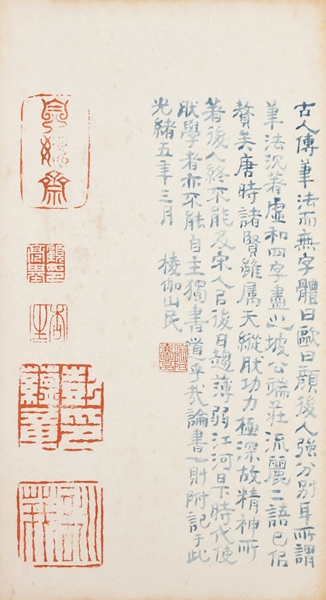 古人傳筆法而無字體曰歐曰顏後人強分別耳所謂
筆法沉著虛和四字盡之坡公端莊流麗二語已
贅矣唐時諸賢雖屬天縱狀功力極深故精神所
著後人終不能及宋人已後日趨薄弱江河日下時代使
狀學者亦不能自主獨書道乎哉論書一則附記于此
光緒五年三月 棱伽山民